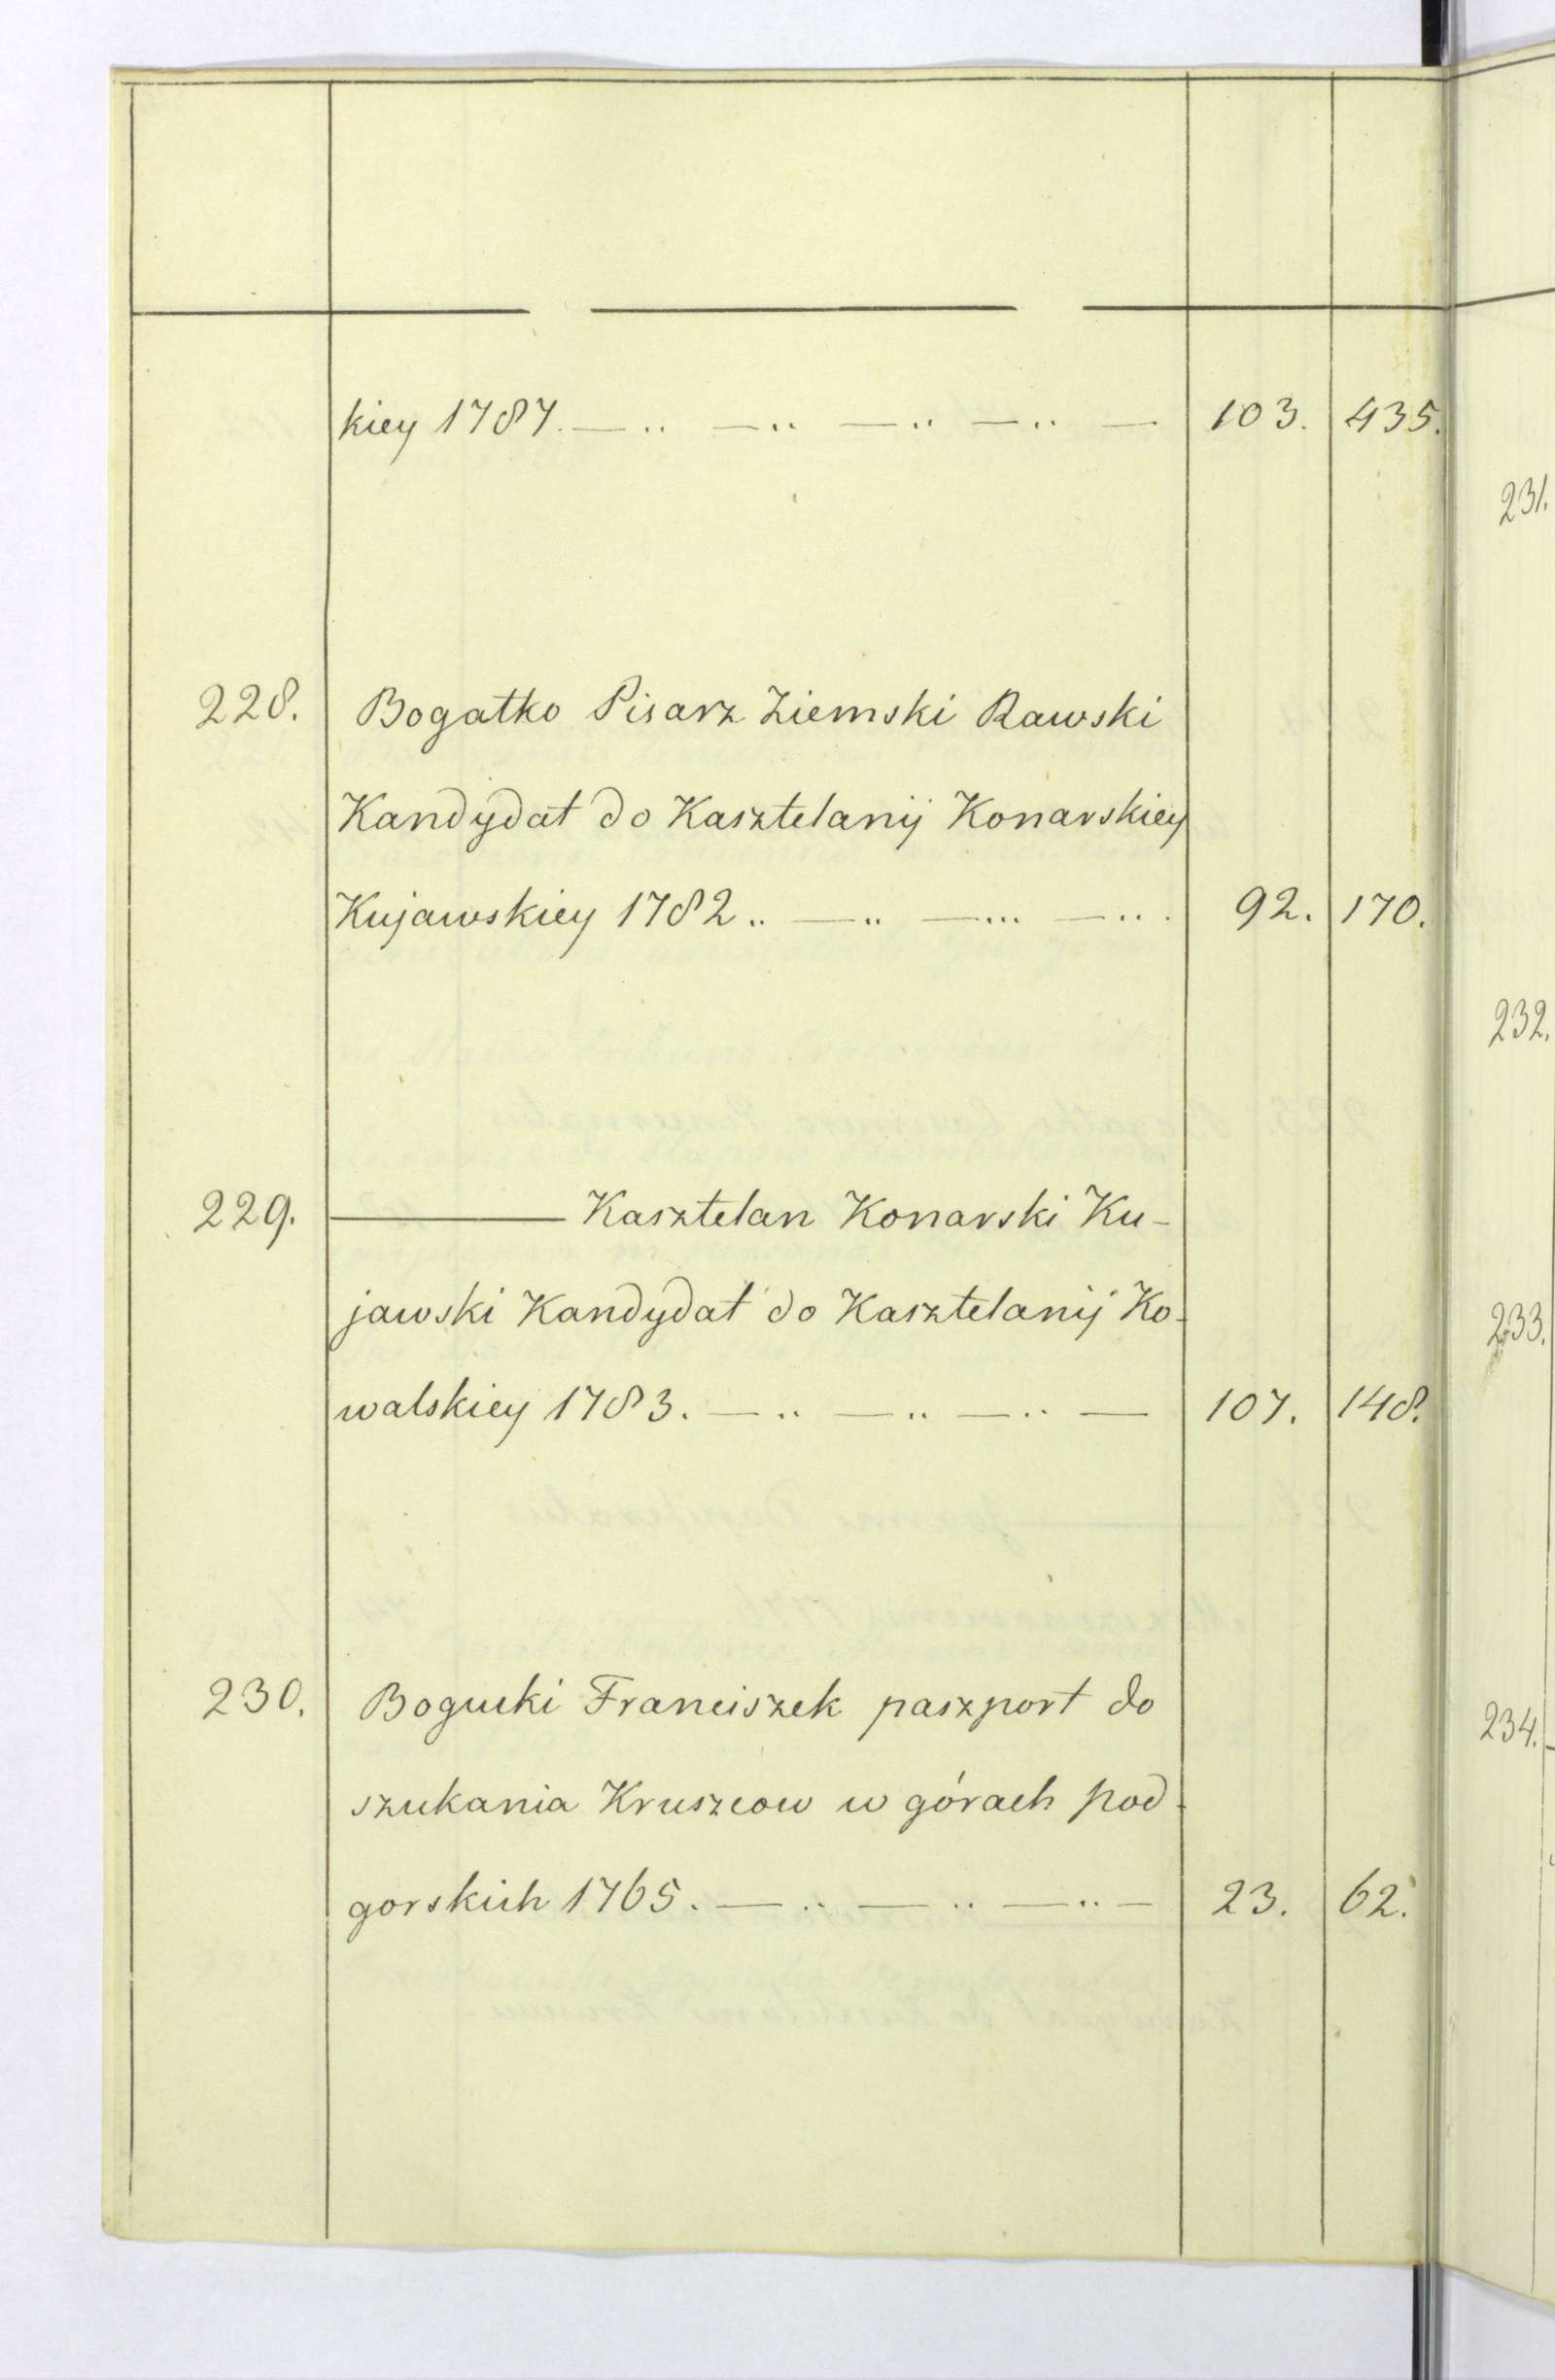 kiey 1787. — .. — .. — .. — .. — 103. 435.
228. Bogatko Pisarz Ziemski Rawski
Kandydat do Kasztelanij Konarskiey
Kujawskiey 1782 .. — .. — ... — ... 92. 170.
229. ——— Kasztelan Konarski Ku-
jawski Kandydat do Kasztelanij Ko-
walskiey 1783. — .. — .. — .. — 107. 148.
230. Bogucki Franciszek paszport do
szukania Kruszcow w górach pod-
gorskich 1765. — .. — .. — .. — 23. 62.
231.
232.
233.
234.